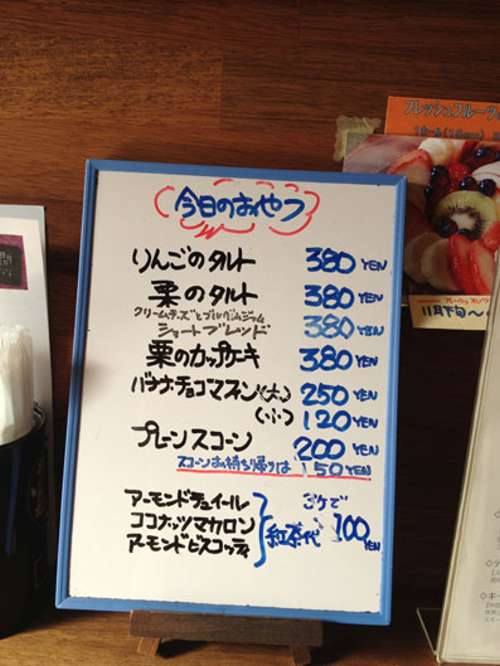 フレッシュフルーツ
1ホール(18cm)
今日のおやつ
りんごのタルト 380 YEN
栗のタルト 380 YEN
クリームチーズと
ショートブレッド 380 YEN
栗のカップケーキ 380 YEN
バナナチョコマフィン(大) 250 YEN
(小) 120 YEN
プレーンスコーン 200 YEN
スコーンお持ち帰りは 150 YEN
アーモンドチュイール
ココナッツマカロン
アーモンドビスコッティ
3ケで
紅茶代 100 YEN
11月下旬〜